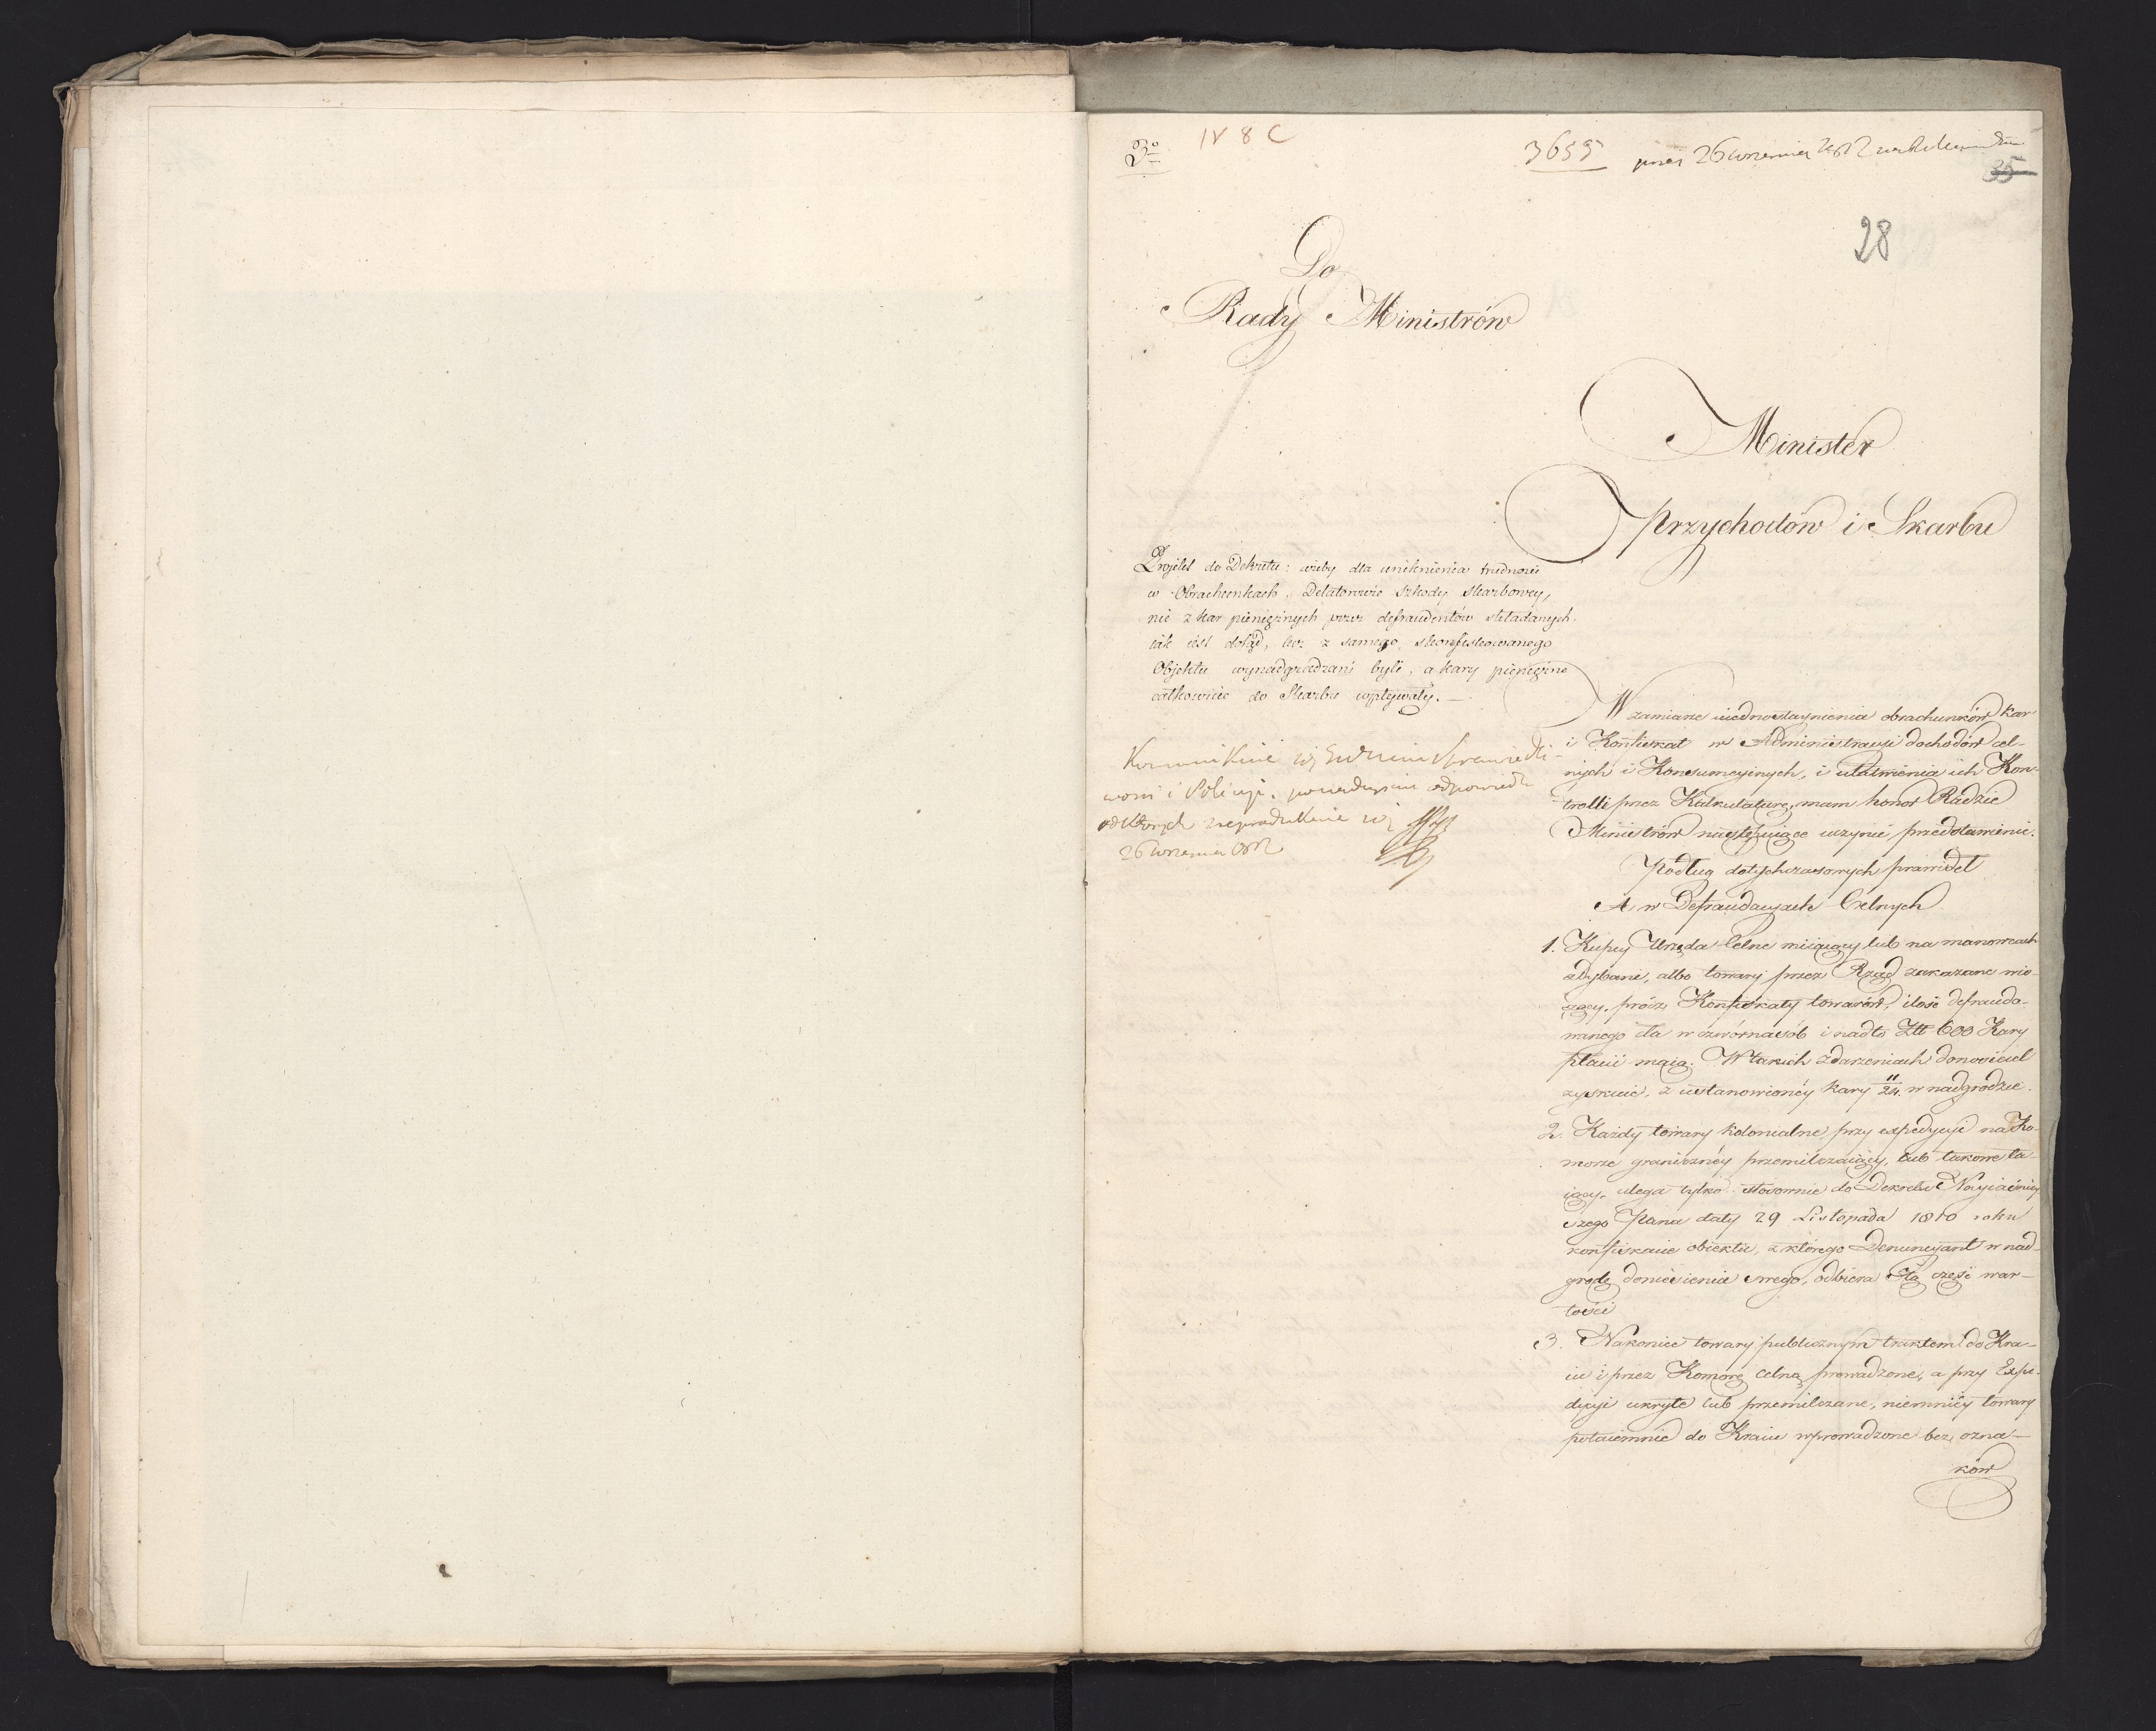 3º
IV 8 C
3655 26 września
35
28
Do
Rady Ministrów
Minister
Przychodów i Skarbu
Projekt do Dekretu: ażeby dla uniknienia trudności
w Obrachunkach, Delatorowie szkody skarbowey,
nie z kar pieniężnych przez defraudentów składanych
iak iest dotąd, lecz z samego skonfiskowanego
Objektu wynadgradzani byli, a kary pieniężne
całkowicie do Skarbu wpływały. —
Kommunikuie się Sprawiedli-
wości i Policyi, odpowiedzi
od których zreprodukuie się
26 Września 1812
W zamiarze uiednostaynienia obrachunków kar
i Konfiskat w Administracyi dochodów cel-
nych i Konsumcyinych, i ułatwienia ich Kon-
trolli przez Kalkulaturę, mam honor Radzie
Ministrów następuiące uczynić przedstawienie.
Podług dotychczasowych prawideł
A, w Defraudacyach Celnych
1. Kupcy Urzęda Celne miiaiący lub na manowcach
zdybani, albo towary przez Rząd zakazane wio-
zący, prócz Konfiskaty towarów, ilość defraudo-
wanego cła w czwórnasób i nadto Złł 600 Kary
płacić maią. W takich zdarzeniach donosiciel
zyskuie, z ustanowionéy kary 11/24 w nadgrodzie.
2. Każdy towary kolonialne przy expedycyi na Ko-
morze granicznéy przemilczaiący, lub takowe ta-
iący, ulega tylko stosownie do Dekretu Nayiaśniey-
szego Pana daty 29 Listopada 1810 roku
konfiskacie obiektu, z którego Denuncyant w nad-
grodę doniesienia swego, odbiera część war-
tości
3. Nakoniec towary publicznym traktem do Kra-
iu i przez Komorę celną prowadzone, a przy Expe-
dycyi ukryte lub przemilczane, niemniéy towary
potaiemnie do Kraiu wprowadzone bez ozna-
ków